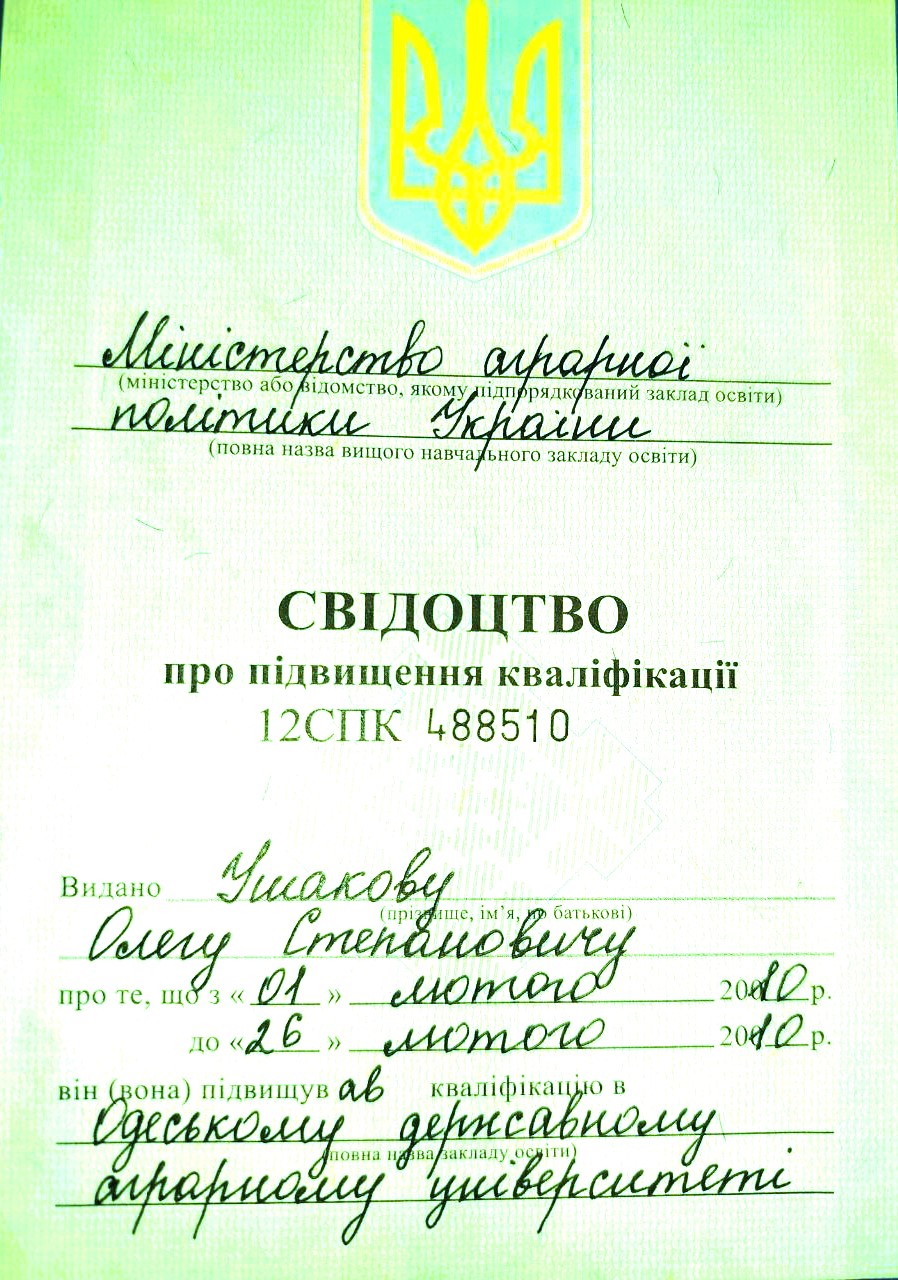 Міністерство аграрної
(міністерство або відомство, якому підпорядкований заклад освіти)
політики України
(повна назва вищого навчального закладу освіти)
СВІДОЦТВО
про підвищення кваліфікації
12СПК 488510
Видано Ушакову
(прізвище, ім’я, по батькові)
Олегу Степановичу
про те, що з «01» лютого 2010 р.
до «26» лютого 2010 р.
він (вона) підвищував кваліфікацію в
Одеському державному
(повна назва закладу освіти)
аграрному університеті